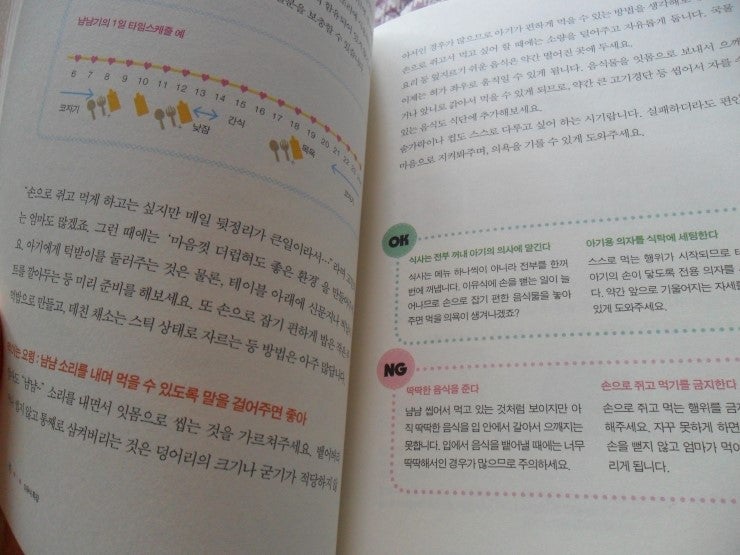 을 보충할 수 있습
냠냠기의 1일 타임스케줄 예
6 7 8 9 10 11 12 13 14 15 16 17 18 19 20 21 22
코자기
낮잠
간식
목욕
코자기
'손으로 쥐고 먹게 하고는 싶지만 매일 뒷정리가 큰일이라서…' 라며
는 엄마도 많겠죠. 그런 때에는 '마음껏 더럽혀도 좋은 환경'을 만들어
요. 아기에게 턱받이를 둘러주는 것은 물론, 테이블 아래에 신문지나
트를 깔아두는 등 미리 준비를 해보세요. 또 손으로 잡기 편하게 밥은 작은
먹밥으로 만들고, 데친 채소는 스틱 상태로 자르는 등 방법은 아주 많답니다.
요령 : 냠냠 소리를 내며 먹을 수 있도록 말을 걸어주면 좋아
"냠냠~" 소리를 내면서 잇몸으로 씹는 것을 가르쳐주세요. 뱉어버리
않고 통째로 삼켜버리는 것은 덩어리의 크기나 굳기가 적당하지 않
아서인 경우가 많으므로 아기가 편하게 먹을 수 있는 방법을 생각해
손으로 쥐고서 먹고 싶어 할 때에는 소량을 덜어주고 자유롭게 둡니다. 국물
요리 등 엎지르기 쉬운 음식은 약간 떨어진 곳에 두세요.
이제는 혀가 좌우로 움직일 수 있게 됩니다. 음식물을 잇몸으로 보내서 으깨
거나 앞니로 갉아서 먹을 수 있게 되므로, 약간 큰 고기경단 등 씹어서 자를 수
있는 음식도 식단에 추가해보세요.
숟가락이나 컵도 스스로 다루고 싶어 하는 시기랍니다. 실패하더라도 편안
마음으로 지켜봐주며, 의욕을 기를 수 있게 도와주세요.
OK
식사는 전부 꺼내 아기의 의사에 맡긴다
식사는 메뉴 하나씩이 아니라 전부를 한꺼
번에 꺼냅니다. 이유식에 손을 뻗는 일이 늘
어나므로 손으로 잡기 편한 음식물을 놓아
주면 먹을 의욕이 생겨나겠죠?
아기용 의자를 식탁에 세팅한다
스스로 먹는 행위가 시작되므로 테
아기의 손이 닿도록 전용 의자를
다. 약간 앞으로 기울어지는 자세를
있게 도와주세요.
NG
딱딱한 음식을 준다
냠냠 씹어서 먹고 있는 것처럼 보이지만 아
직 딱딱한 음식을 입 안에서 갈아서 으깨지는
못합니다. 입에서 음식을 뱉어낼 때에는 너무
딱딱해서인 경우가 많으므로 주의하세요.
손으로 쥐고 먹기를 금지한다
손으로 쥐고 먹는 행위를 금지
해주세요. 자꾸 못하게 하면
손을 뻗지 않고 엄마가 먹여
리게 됩니다.